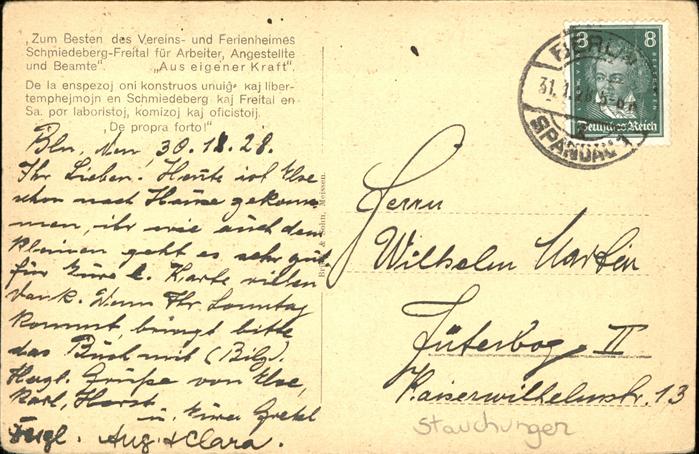 „Zum Besten des Vereins- und Ferienheimes
Schmiedeberg-Freital für Arbeiter, Angestellte
und Beamte“. „Aus eigener Kraft“.
De la enspezoj oni konstruos unuiĝ- kaj liber-
temphejmojn en Schmiedeberg kaj Freital en
Sa. por laboristoj, komizoj kaj oficistoj.
„De propra forto!“
Bln, den 30.1.28.
Ihr Lieben! Heute ist Else
schon nach Hause gekom-
men, ihr wie auch dem
Kleinen geht es sehr gut,
für Eure l. Karte vielen
Dank. Wenn Ihr Sonntag
kommt, bringt bitte
das Buch mit (Bilz).
Herzl. Grüße von Else,
Karl, Horst
u. Eurer Gretel
Aug + Clara.
& Sohn, Meissen.
8 8
Deutsches Reich
BERLIN
31.1.28
SPANDAU 1
Herrn
Wilhelm Martin
Jüterbog II
Kaiserwilhelmstr. 13
Stauchungen